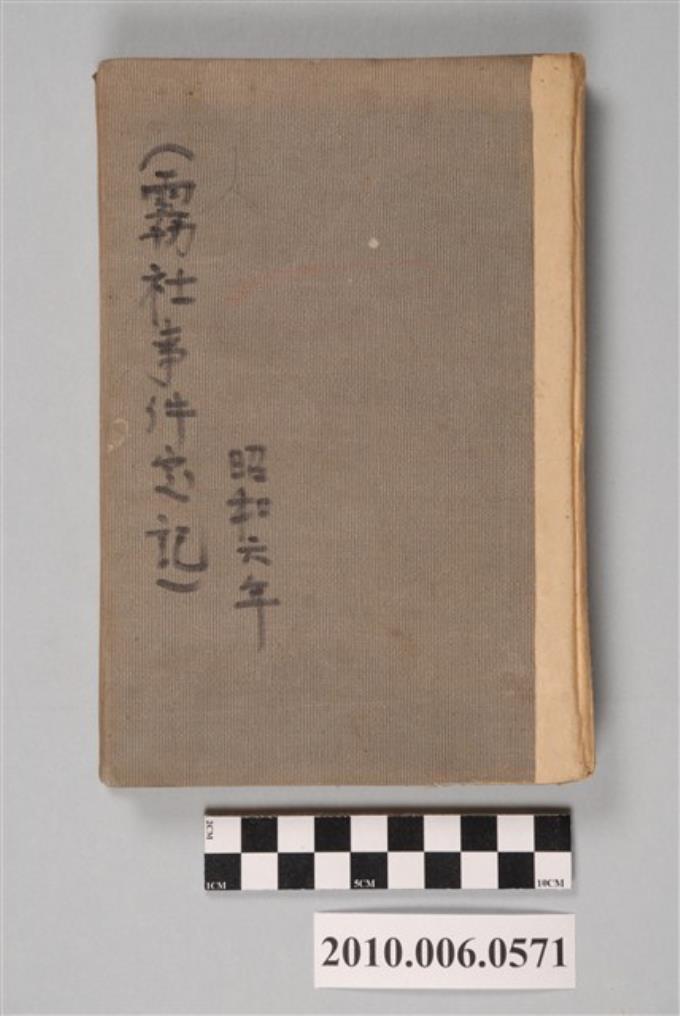 昭和六年
(霧社事件忘記)
2CM
1CM 5CM 10CM
2010.006.0571